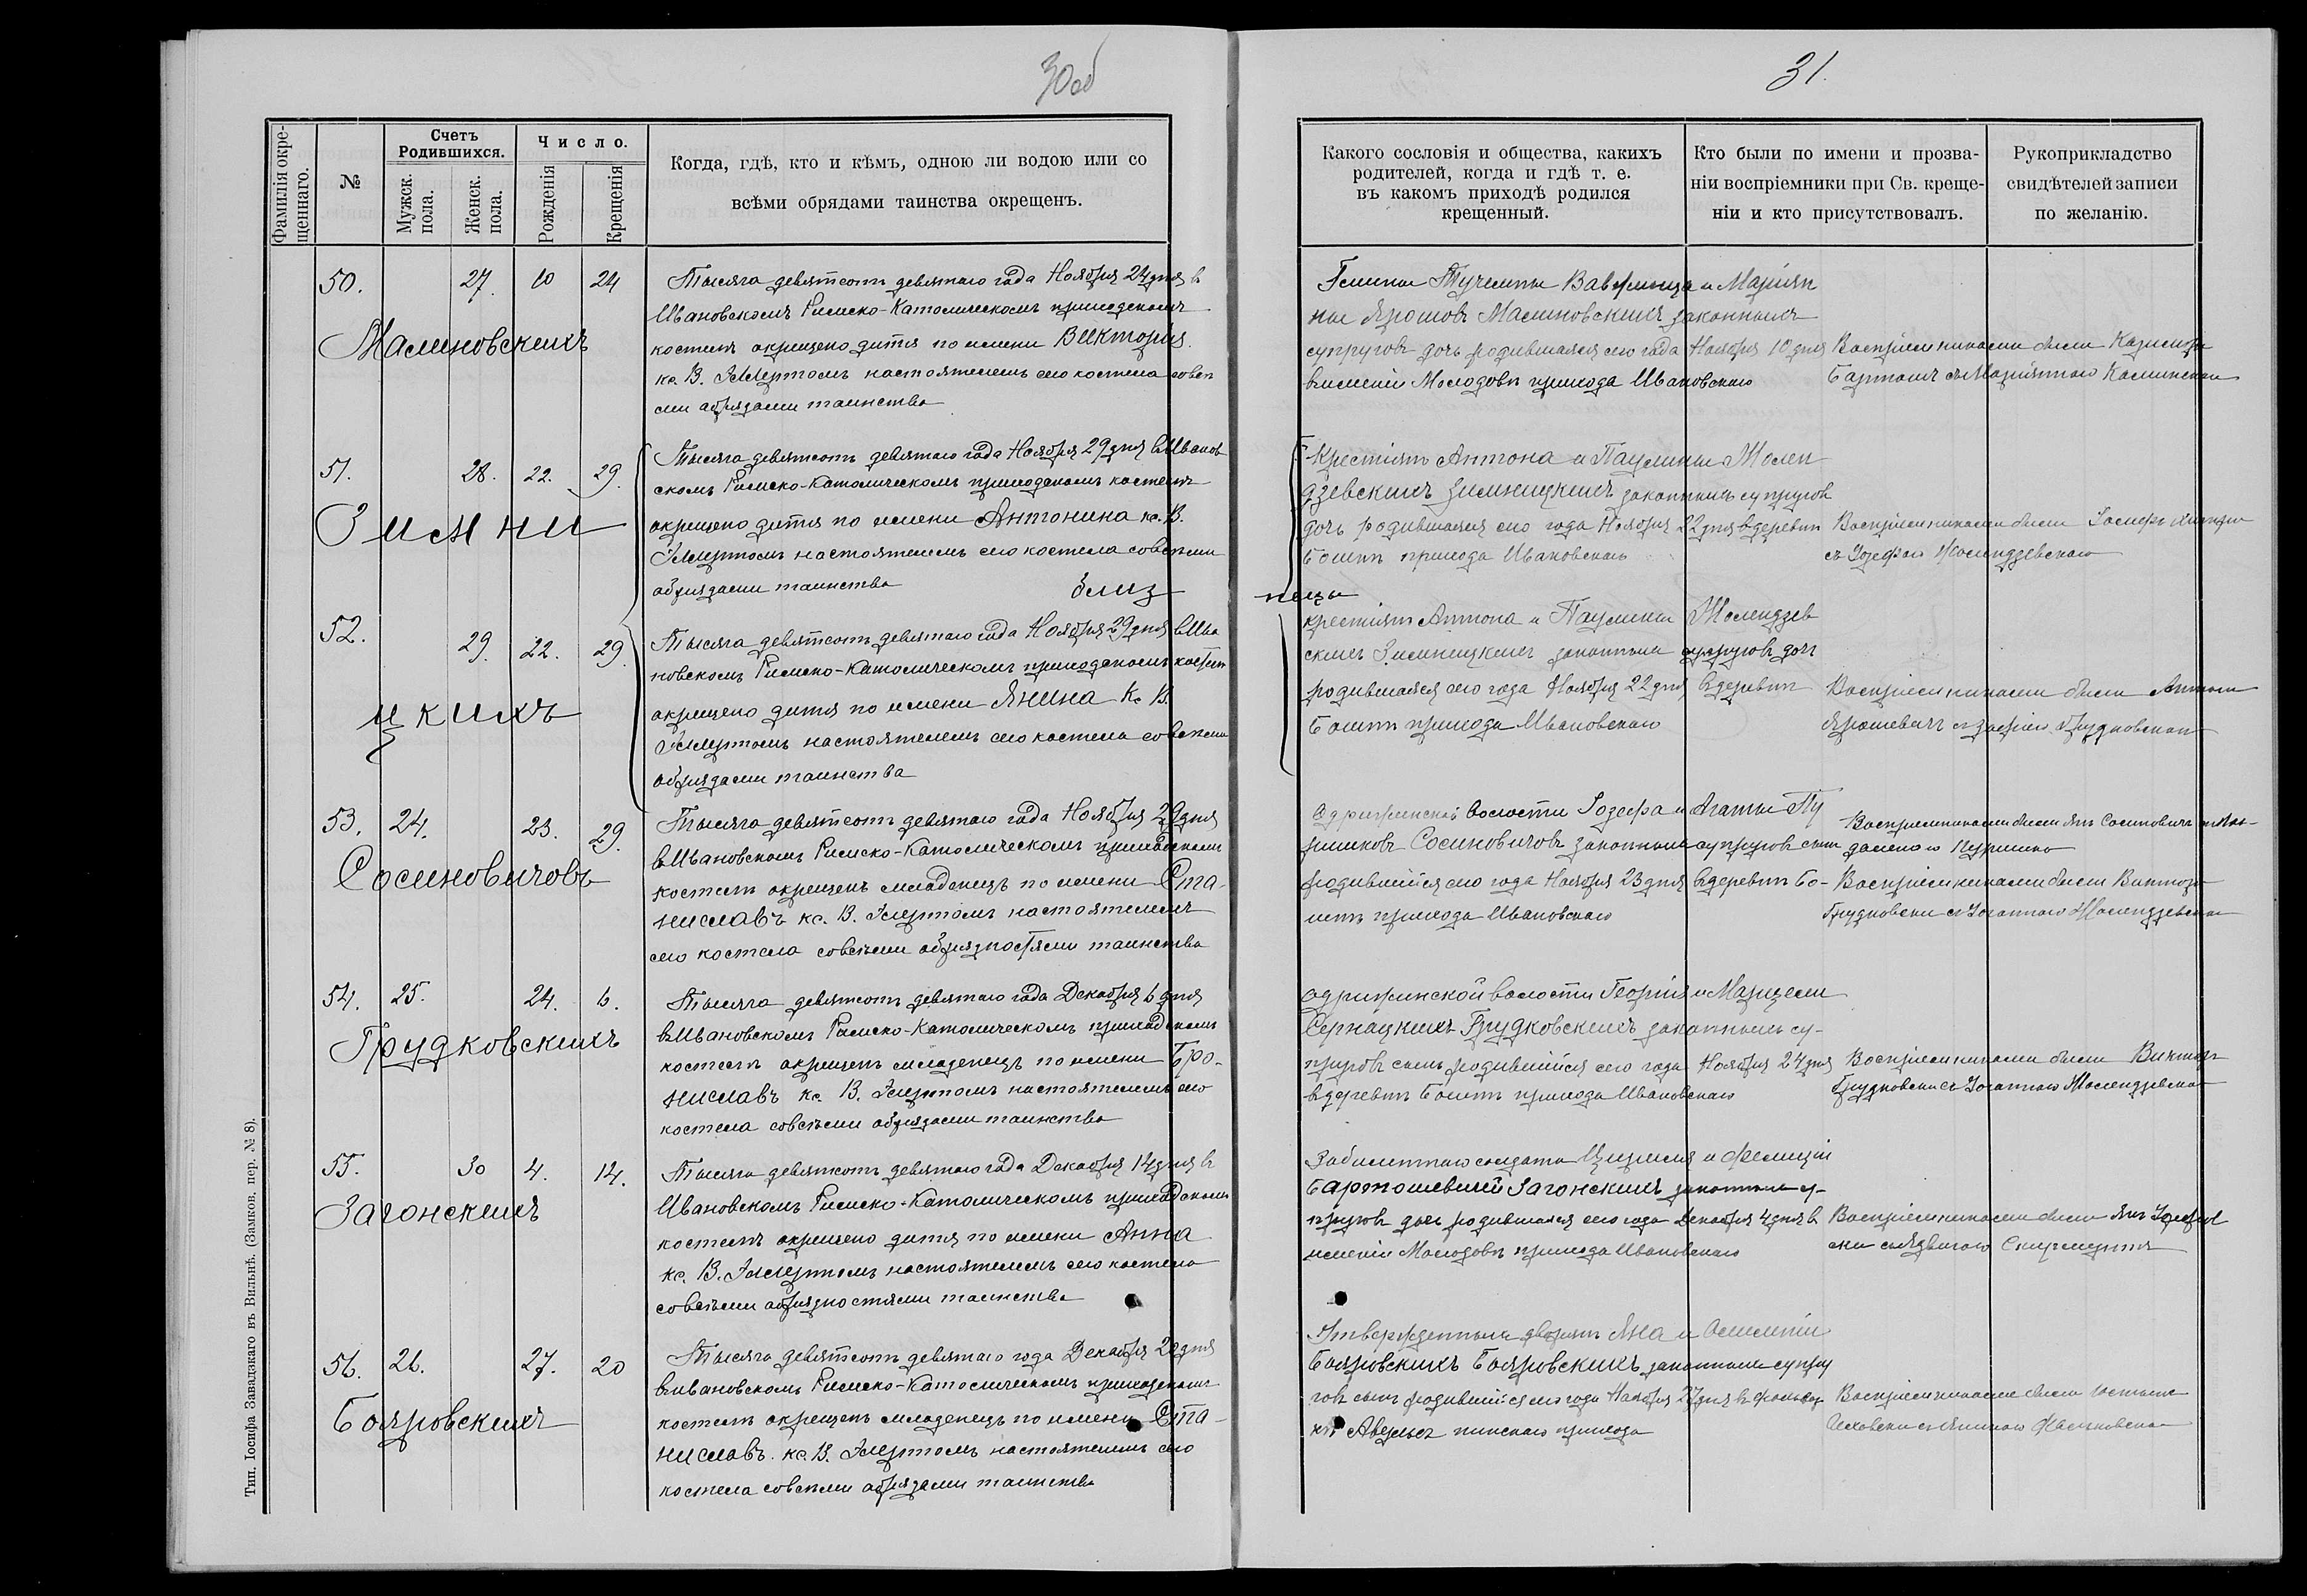 30об
Фамилія окре-
щеннаго.
№
Счетъ
Родившихся.
Мужск.
пола.
Женск.
пола.
Число.
Рожденія
Крещенія
Когда, гдѣ, кто и кѣмъ, одною ли водою или со
всѣми обрядами таинства окрещенъ.
50.
27.
10
24
Малиновскихъ
Тысяча девятсотъ девятаго года Ноября 24 дня в
Ивановскомъ Римско-Католическомъ приходскомъ
костелѣ окрещено дитя по имени Викторія.
кс. В. настоятелемъ сего костела совсѣ
ми обрядами таинства
51.
28.
22.
29.
Зимни
Тысяча девятсотъ девятаго года Ноября 29 дня вИванов
скомъ Римско-Католическомъ приходскомъ костелѣ
окрещено дитя по имени Антонина кс. В.
настоятелемъ сего костела совсѣми
обрядами таинства
близ
52.
29.
22.
29.
цкихъ
Тысяча девятсотъ девятаго года Ноября 29 дня вИва
новскомъ Римско-Католическомъ приходскомъ костелѣ
окрещено дитя по имени Янина Кс В.
настоятелемъ сего костела совсѣми
обрядами таинства
53.
24.
23.
29.
Сосиновичовъ
Тысяча девятсотъ девятаго года Ноября 29 дня
вИвановскомъ Римско-Католическомъ приходскомъ
костелѣ окрещенъ младенецъ по имени Ста-
ниславъ кс. В. настоятелемъ
сего костела совсѣми обрядностями таинства
54.
25.
24.
6.
Грудковскихъ
Тысяча девятсотъ девятаго года Декабря 6 дня
вИвановскомъ Римско-Католическомъ приходскомъ
костелѣ окрещенъ младенецъ по имени Бро-
ниславъ кс. В. настоятелемъ сего
костела совсѣми обрядами таинства
55.
30
4.
14.
Загонскихъ
Тысяча девятсотъ девятаго года Декабря 14 дня в
Ивановскомъ Римско-Католическомъ приходскомъ
костелѣ окрещено дитя по имени Анна
кс. В. настоятелемъ сего костела
совсѣми обрядностями таинства
56.
26.
27.
20
Бояровскихъ
Тысяча девятсотъ девятаго года Декабря 20 дня
вИвановскомъ Римско-Католическомъ приходскомъ
костелѣ окрещенъ младенецъ по имени Ста-
ниславъ. кс. В. настоятелемъ сего
костела совсѣми обрядами таинства
Тип. Іосифа Завадзкаго въ Вильнѣ. (Замков. пер. № 8).
31.
Какого сословія и общества, какихъ
родителей, когда и гдѣ т. е.
въ какомъ приходѣ родился
крещенный.
Кто были по имени и прозва-
ніи воспріемники при Св. креще-
ніи и кто присутствовалъ.
Рукоприкладство
свидѣтелей записи
по желанію.
Вавринца и Маріян
ны Ярошовъ Малиновскихъ законныхъ
супруговъ дочь родившаяся сего года Ноября 10 дня
вимѣніи Молодовѣ прихода Ивановскаго
Воспріемниками были Казимиръ
съ Маріянною
Крестіянъ Антона и Паулины Жолен
дзевскихъ Зимницкихъ законныхъ супругов
дочь родившаяся сего года Ноября 22 дня вдеревнѣ
прихода Ивановскаго
Воспріемниками были
съ Юзефою Жолендзевскою
нецы
крестіянъ Антона и Паулины Жолендзев
скихъ Зимницкихъ законныхъ супруговъ дочь
родившаяся сего года Ноября 22 дня вдеревнѣ
прихода Ивановскаго
Воспріемниками были Антонъ
Ярошевичъ съ Грудковскою
Одрижинской волости Іозефа и Агаты
Сосиновичовъ законныхъ супруговъ сынъ
родившійся сего года Ноября 23 дня вдеревнѣ
прихода Ивановскаго
Воспріемниками были Янъ Сосиновичъ
Воспріемниками были Викторъ
Грудковски съ Іоганною Жолендзевскою
Одрижинской волости Георгія и Марцели
Грудковскихъ законныхъ су-
пруговъ сынъ родившійся сего года Ноября 24 дня
вдеревнѣ прихода Ивановскаго
Воспріемниками были Викторъ
Грудковски съ Іоганною Жолендзевскою
солдата и Фелиціи
Загонскихъ законныхъ су-
пруговъ дочь родившаяся сего года Декабря 4 дня в
имѣніи Молодовѣ прихода Ивановскаго
Воспріемниками были Янъ
ски съ Ядвигою Скирмунтъ
Утвержденныхъ дворянъ Яна и
Бояровскихъ законныхъ супру
говъ сынъ родившійся сего года Ноября 27 дня в
пинскаго прихода
Воспріемниками были